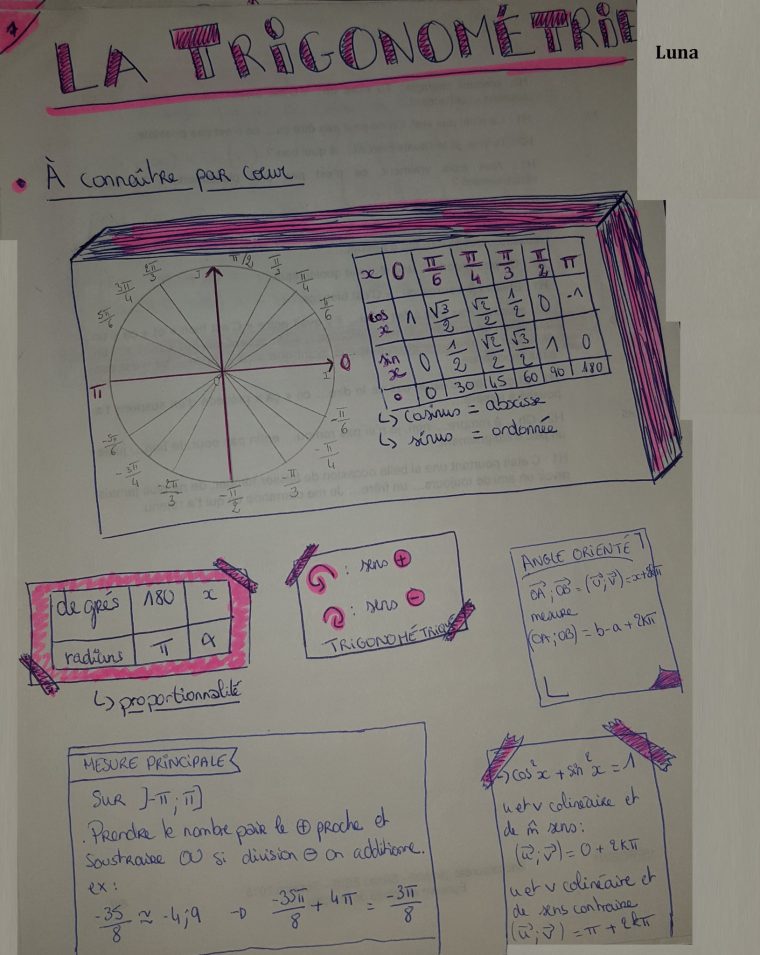 1
LA TRIGONOMÉTRIE
Luna
• À connaître par cœur
J π/2
2π/3 π/3
3π/4 π/4
5π/6 π/6
π O I 0
-5π/6 -π/6
-3π/4 -π/4
-2π/3 -π/3
-π/2
x 0 π/6 π/4 π/3 π/2 π
cos x 1 √3/2 √2/2 1/2 0 -1
sin x 0 1/2 √2/2 √3/2 1 0
° 0 30 45 60 90 180
↳ cosinus = abscisse
↳ sinus = ordonnée
degrés 180 x
radians π α
↳ proportionnalité
: sens +
: sens -
TRIGONOMÉTRIQUE
ANGLE ORIENTÉ
OA ; OB = (u ; v) = x+2kπ
mesure
(OA ; OB) = b-a + 2kπ
MESURE PRINCIPALE
Sur ]-π ; π]
. Prendre le nombre paire le ⊕ proche et
soustraire OU si division ⊖ on additionne.
ex :
-35/8 ≈ -4,9 → -35π/8 + 4π = -3π/8
→ cos²x + sin²x = 1
u et v colinéaire et
de m̂ sens :
(u ; v) = 0 + 2kπ
u et v colinéaire et
de sens contraire
(u ; v) = π + 2kπ